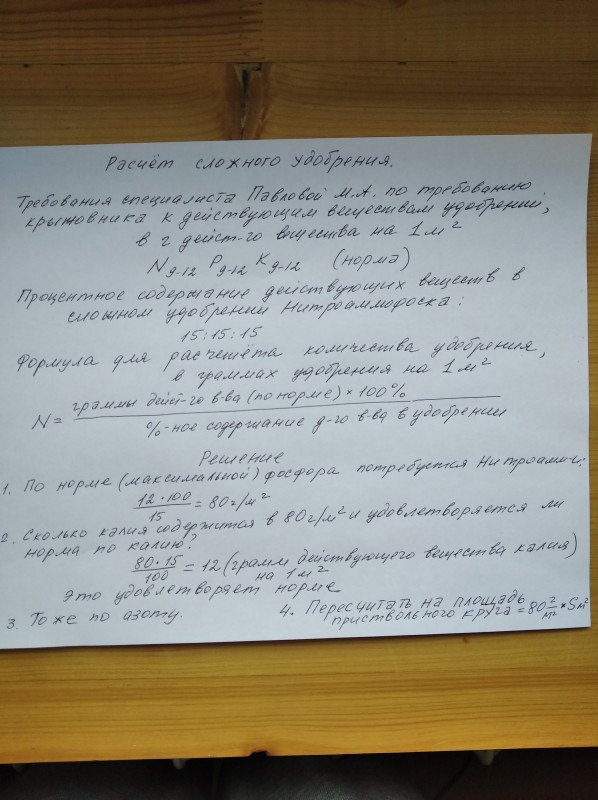 Расчёт сложного удобрения.
Требования специалиста Павловой М.А. по требованию
крыжовника к действующим веществам удобрений,
в г дейст-го вещества на 1 м²
N9-12 P9-12 K9-12 (норма)
Процентное содержание действующих веществ в
сложном удобрении Нитроаммофоска:
15:15:15
Формула для расчёта количества удобрения,
в граммах удобрения на 1 м²
N = граммы дейст-го в-ва (по норме) × 100%
%-ное содержание д-го в-ва в удобрении
Решение
1. По норме (максимальной) фосфора потребуется
12 · 100 / 15 = 80 г/м²
2. Сколько калия содержится в 80 г/м² и удовлетворяется ли
норма по калию?
80 · 15 / 100 = 12 (грамм действующего вещества калия)
на 1 м²
Это удовлетворяет норме
3. То же по азоту.
4. Пересчитать на площадь
приствольного круга = 80 г/м² × S м²